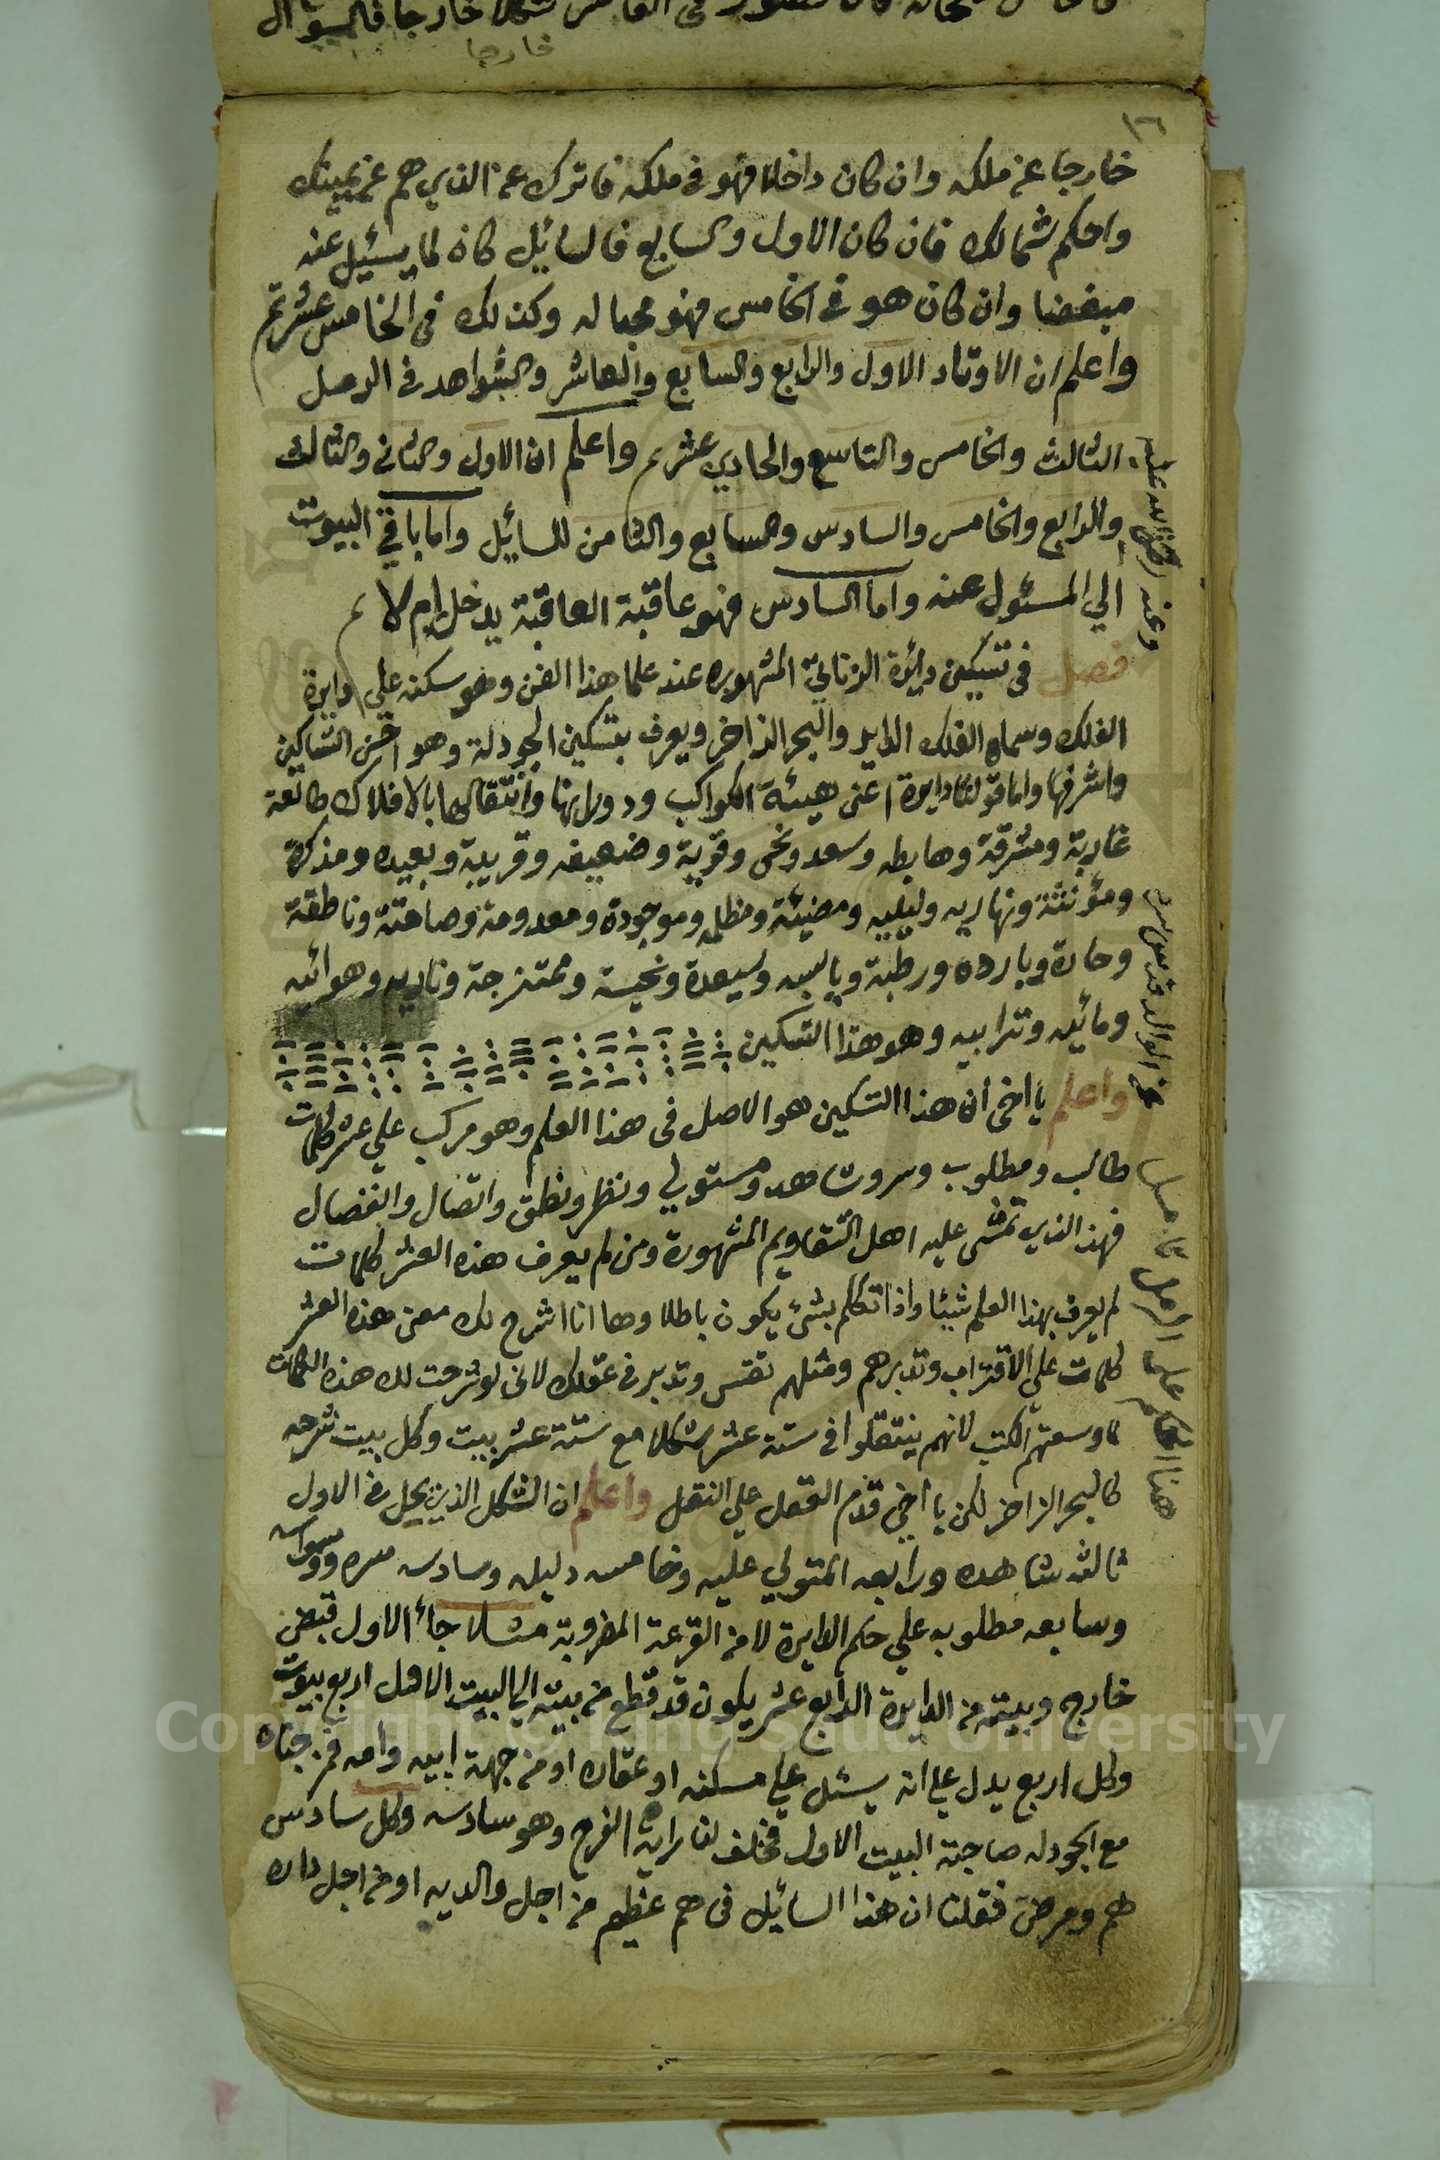 ١٦
خارجا عن ملكه وان كان داخلا فهو في ملكه فاترك عن الذي هم عن يمينك
واحكم شمالك فان كان الاول والسابع فالسائيل كاره لما يسئيل عنه
مبغضا وان كان هو في الخامس فهو محبا له وكذلك في الخامس عشر تم
واعلم ان الاوتاد الاول والرابع والسابع والعاشر والشواهد في الرمل
الثالث والخامس والتاسع والحادي عشر واعلم ان الاول والثاني والثالث
والرابع والخامس والسادس والسابع والثامن للسائيل واما باقي البيوت
الي المسئول عنه واما السادس فهو عاقبة العاقبة يدخل ام لا
فصل في تسكين دايرة الزناتي المشهوره عند علما هذا الفن وهو سكنه علي دايرة
الفلك وسماه الفلك الداير والبحر الزاخر ويعرف بتسكين الجودلة وهو احسن التساكين
واشرفها واما قولنا دايرة اعنى هيئة الكواكب ودورانها وانتقالها بالافلاك طالعة
غاربة ومشرقة وهابطه وسعد ونحس وقوية وضعيفه وقريبة وبعيده ومذكرة
ومؤنثة ونهاريه وليليه ومضيئة ومظلمه وموجودة ومعدومة وصامتة وناطقة
وحارة وبارده ورطبة ويابسه وسعيدة ونحيسة وممتزجة وناريه وهوائيه
ومائيه وترابيه وهو هذا التسكين
واعلم يا اخى ان هذا التسكين هو الاصل فى هذا العلم وهو مركب علي عشر كلمات
طالب ومطلوب وسر وشاهد ومستولي ونظر ونطق واتصال وانفصال
فهذا الذي تمشى عليه اهل التقاويم المشهورة ومن لم يعرف هذه العشر كلمات
لم يعرف بهذا العلم شيئا واذا تكلم بشئ يكون باطلا وها انا اشرح لك معنى هذه العشر
كلمات علي الاقتراب وتدبرهم ومثلهم تقتس وتدبر في عقلك لانى لو شرحت لك هذه الكلمات
لما وسعتهم الكتب لانهم ينتقلوا في ستة عشر شكلا مع ستة عشر بيت وكل بيت شرحه
كالبحر الزاخر لكن يا أخي قدم العقل علي النقل واعلم ان الشكل الذي يحل في الاول
ثالثه شاهده ورابعه المتولي عليه وخامسه دليله وسادسه سره ووسواسه
وسابعه مطلوبه علي حكم الدايرة لا من القرعة المضروبة مثلا جأ الاول قبض
خارج وبيته من الدايرة الرابع عشر يكون قد قطع من بيته الي البيت الاول اربع بيوت
وكل اربع يدل علي انه يسئل علي مسكنه او عقاره او من جهة ابيه وامه فمزجناه
مع الجودله صاحبة البيت الاول فخلف لنا راية الفرح وهو سادسه وكل سادس
هم ومرض فقلنا ان هذا السائيل فى هم عظيم من اجل والديه او من اجل داره
Copyright © King Saud University